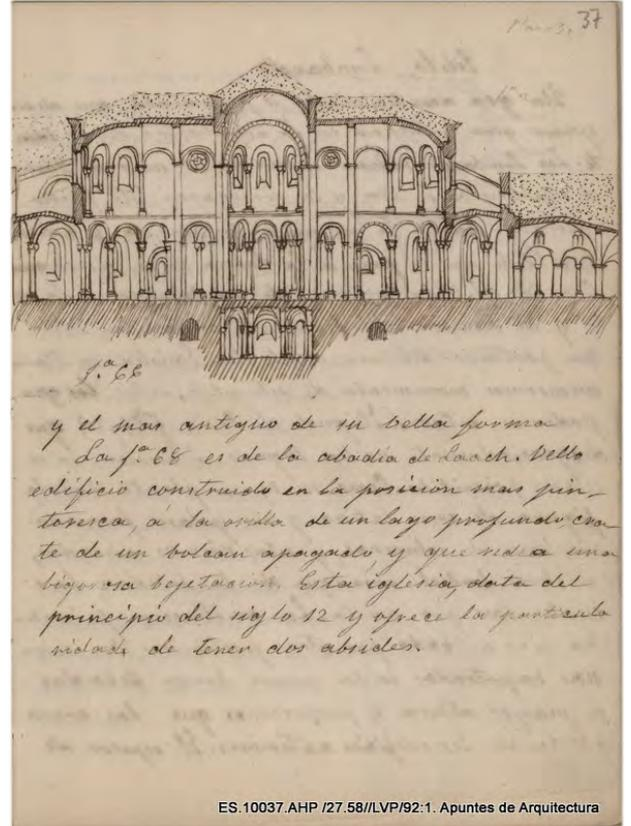 37
fª 66
y el mas antiguo de su bella forma
La fª 68 es de la abadia de Laach. Bello
edificio construido en la posicion mas pin-
toresca, á la orilla de un lago profundo, cra-
te de un bolcan apagado y que rodea una
bigorosa bejetacion. Esta iglesia, data del
principio del siglo 12 y ofrece la particula
ridad, de tener dos absides.
ES.10037.AHP /27.58//LVP/92:1. Apuntes de Arquitectura